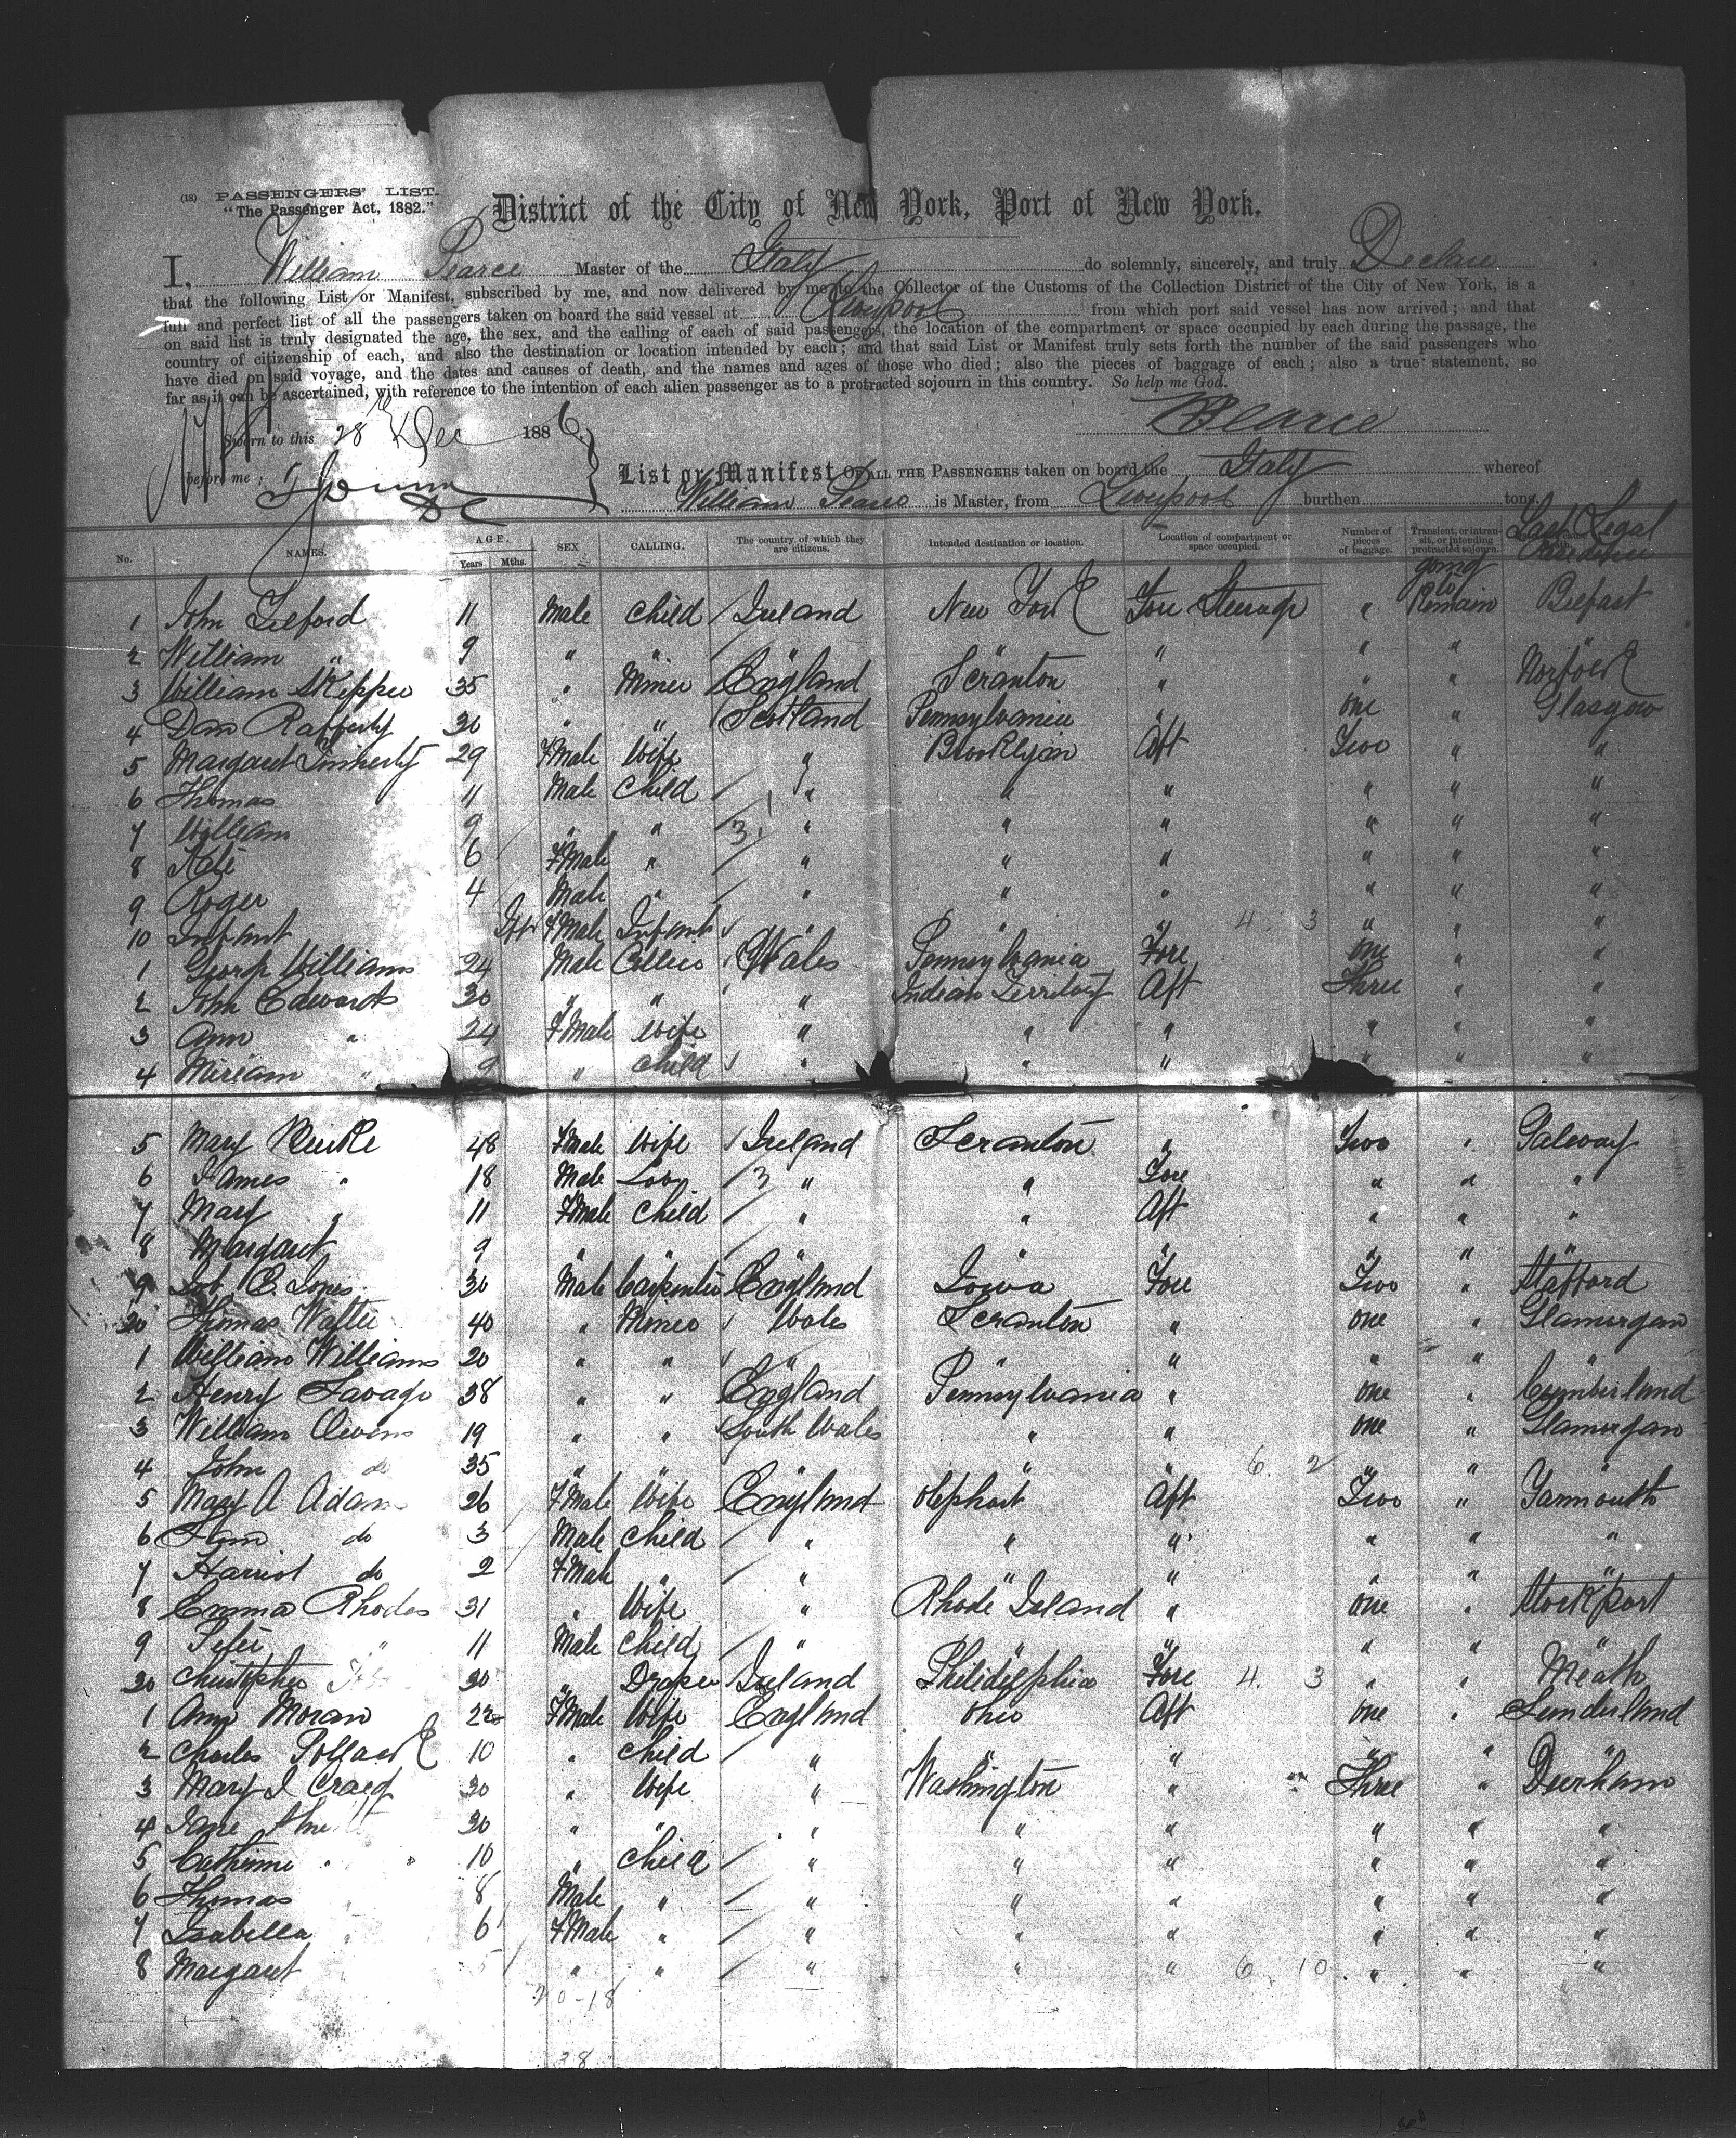 (18) PASSENGERS' LIST.
"The Passenger Act, 1882."
District of the City of New York, Port of New York.
I, William Pearce Master of the Italy do solemnly, sincerely, and truly Declare
that the following List or Manifest, subscribed by me, and now delivered by me to the Collector of the Customs of the Collection District of the City of New York, is a
full and perfect list of all the passengers taken on board the said vessel at Liverpool from which port said vessel has now arrived; and that
on said list is truly designated the age, the sex, and the calling of each of said passengers, the location of the compartment or space occupied by each during the passage, the
country of citizenship of each, and also the destination or location intended by each; and that said List or Manifest truly sets forth the number of the said passengers who
have died on said voyage, and the dates and causes of death, and the names and ages of those who died; also the pieces of baggage of each; also a true statement, so
far as it can be ascertained, with reference to the intention of each alien passenger as to a protracted sojourn in this country. So help me God.
Sworn to this 28 Dec 1886 Pearce
before me;
List or Manifest OF ALL THE PASSENGERS taken on board the Italy whereof
William Pearce is Master, from Liverpool burthen tons.
No. NAMES. AGE. Years Mths. SEX CALLING. The country of which they are citizens. Intended destination or location. Location of compartment or space occupied. Number of pieces of baggage. Transient, or intransit, or intending protracted sojourn. Last Legal Residence
1 John Telford 11 Male Child Ireland New York Fore Steerage " going to Remain Belfast
2 William " 9 " " " " " " "
3 William Skipper 35 " Miner England Scranton " " " Norfolk
4 Dan Rafferty 30 " " Scotland Pennsylvania " one " Glasgow
5 Margaret 29 FMale Wife " Brooklyn Aft Two " "
6 Thomas 11 Male Child " " " " " "
7 William 9 " " 3 " " " " " "
8 Kate 6 FMale " " " " " " "
9 Roger 4 Male " " " " " " "
10 Infant Inft FMale Infant " " " 4 3 " " "
1 George Williams 24 Male Collier Wales Pennsylvania Fore one " "
2 John Edwards 30 " " " Indian Territory Aft Three " "
3 Ann " 24 FMale Wife " " " " " "
4 Miriam " 9 " child " " " " " "
5 Mary 48 FMale Wife Ireland Scranton " Two " Galway
6 James " 18 Male Lab 3 " " Fore " " "
7 Mary " 11 FMale Child " " Aft " " "
8 Margaret 9 " " " " " " " "
9 Job E. Jones 30 Male Carpenter England Iowa Fore Two " Stafford
20 Thomas Walter 40 " Miner Wales Scranton " one " Glamorgan
1 William Williams 20 " " " " " " " "
2 Henry Savage 38 " " England Pennsylvania " one " Cumberland
3 William Owens 19 " " South Wales " " one " Glamorgan
4 John do 35 " " " " " 6 2 " " "
5 Mary A. Adams 26 FMale Wife England Olephant Aft Two " Yarmouth
6 do 3 Male Child " " " " " "
7 Harriot do 2 FMale " " " " " " "
8 Emma Rhodes 31 " Wife " Rhode Island " one " Stockport
9 Peter " 11 Male Child " " " " " "
30 Christopher 30 " Draper Ireland Philidelphia Fore 4 3 " " Meath
1 Ann Moran 22 FMale Wife England Ohio Aft one " Sunderland
2 Charles Pollard 10 " Child " " " " " "
3 Mary J Craig 30 " Wife " Washington " Three " Durham
4 Jane 30 " " " " " " " "
5 Catherine " 10 " Child " " " " " "
6 Thomas 8 Male " " " " " " "
7 Isabella 6 FMale " " " " " " "
8 Margaret 5 " " " " " 6 10 " " "
20-18
38